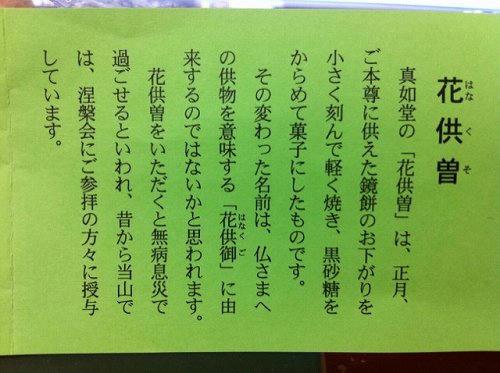 花供曽
はなくそ
真如堂の「花供曽」は、正月、
ご本尊に供えた鏡餅のお下がりを
小さく刻んで軽く焼き、黒砂糖を
からめて菓子にしたものです。
その変わった名前は、仏さまへ
の供物を意味する「花供御」に由
はなくご
来するのではないかと思われます。
花供曽をいただくと無病息災で
過ごせるといわれ、昔から当山で
は、涅槃会にご参拝の方々に授与
しています。